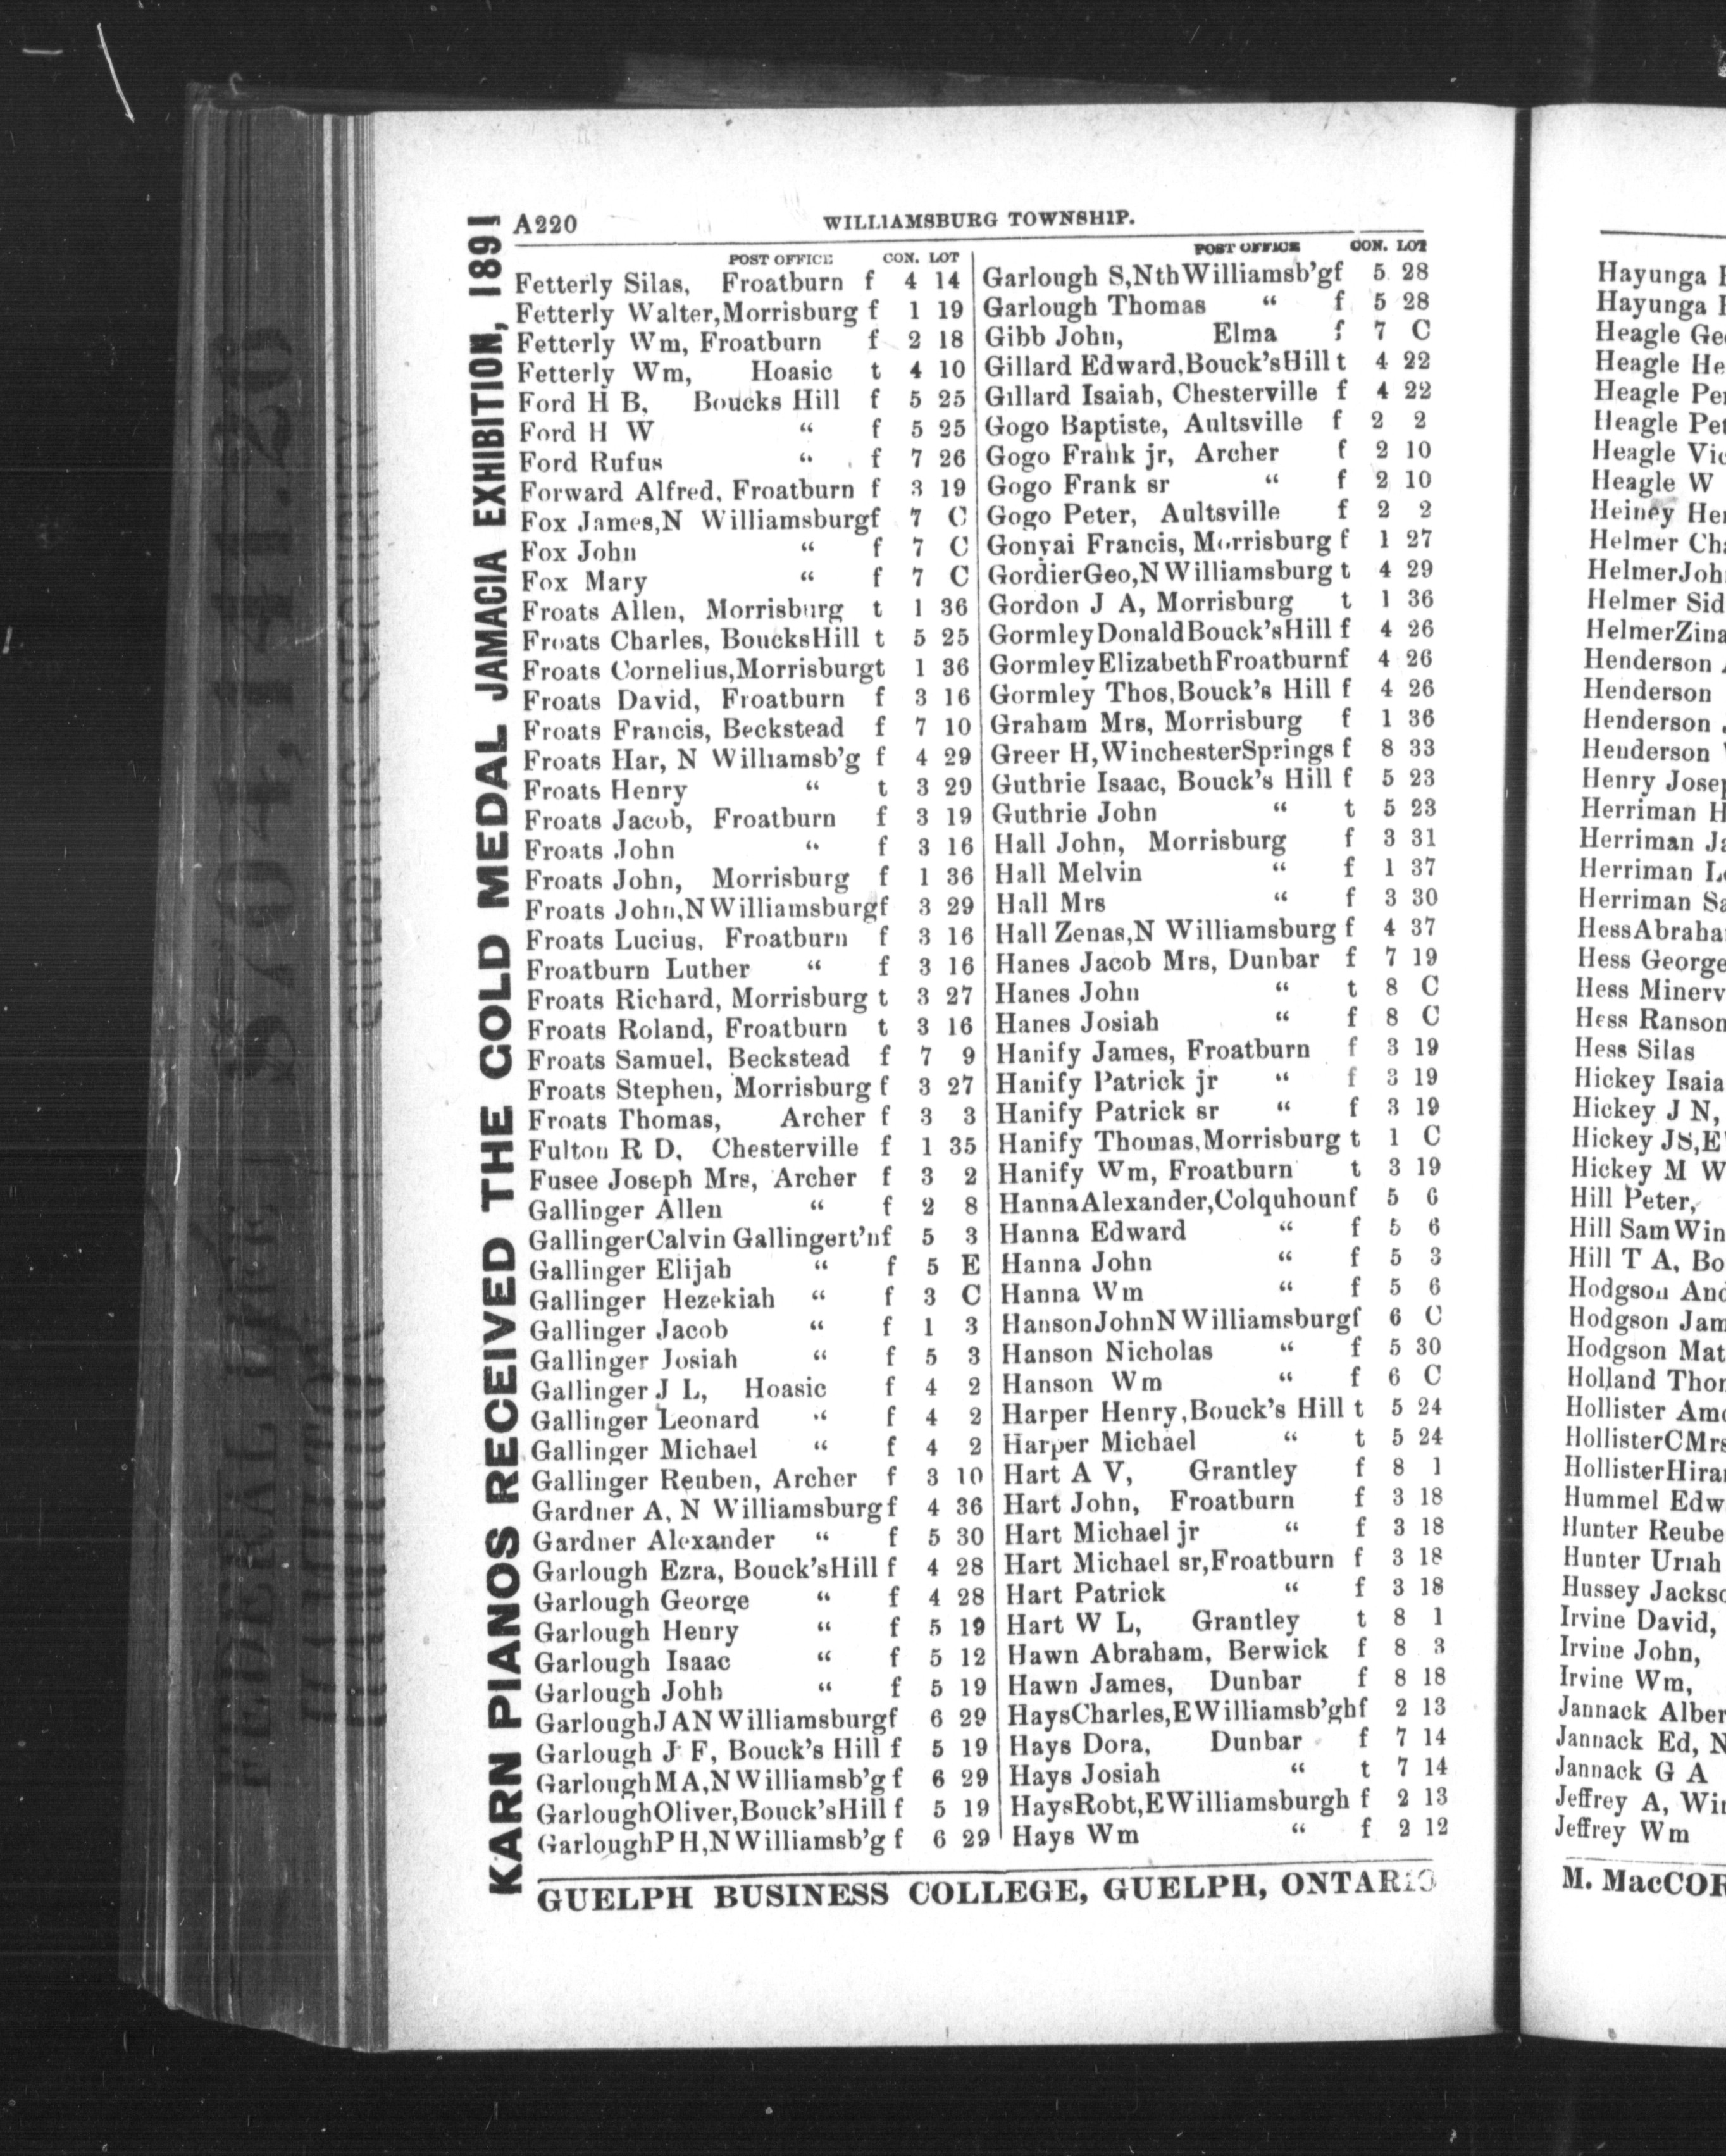 A220
WILLIAMSBURG TOWNSHIP.
KARN PIANOS RECEIVED THE GOLD MEDAL JAMACIA EXHIBITION, 1891
POST OFFICE CON. LOT
Fetterly Silas, Froatburn f 4 14
Fetterly Walter,Morrisburg f 1 19
Fetterly Wm, Froatburn f 2 18
Fetterly Wm, Hoasic t 4 10
Ford H B, Boucks Hill f 5 25
Ford H W “ f 5 25
Ford Rufus “ f 7 26
Forward Alfred, Froatburn f 3 19
Fox James,N Williamsburgf 7 C
Fox John “ f 7 C
Fox Mary “ f 7 C
Froats Allen, Morrisburg t 1 36
Froats Charles, BoucksHill t 5 25
Froats Cornelius,Morrisburgt 1 36
Froats David, Froatburn f 3 16
Froats Francis, Beckstead f 7 10
Froats Har, N Williamsb'g f 4 29
Froats Henry “ t 3 29
Froats Jacob, Froatburn f 3 19
Froats John “ f 3 16
Froats John, Morrisburg f 1 36
Froats John,NWilliamsburgf 3 29
Froats Lucius, Froatburn f 3 16
Froatburn Luther “ f 3 16
Froats Richard, Morrisburg t 3 27
Froats Roland, Froatburn t 3 16
Froats Samuel, Beckstead f 7 9
Froats Stephen, Morrisburg f 3 27
Froats Thomas, Archer f 3 3
Fulton R D, Chesterville f 1 35
Fusee Joseph Mrs, Archer f 3 2
Gallinger Allen “ f 2 8
GallingerCalvin Gallingert'nf 5 3
Gallinger Elijah “ f 5 E
Gallinger Hezekiah “ f 3 C
Gallinger Jacob “ f 1 3
Gallinger Josiah “ f 5 3
Gallinger J L, Hoasic f 4 2
Gallinger Leonard “ f 4 2
Gallinger Michael “ f 4 2
Gallinger Reuben, Archer f 3 10
Gardner A, N Williamsburg f 4 36
Gardner Alexander “ f 5 30
Garlough Ezra, Bouck'sHill f 4 28
Garlough George “ f 4 28
Garlough Henry “ f 5 19
Garlough Isaac “ f 5 12
Garlough Johh “ f 5 19
GarloughJANWilliamsburgf 6 29
Garlough J F, Bouck's Hill f 5 19
GarloughMA,NWilliamsb'g f 6 29
GarloughOliver,Bouck'sHill f 5 19
GarloughPH,NWilliamsb'g f 6 29
POST OFFICE CON. LOT
Garlough S,NthWilliamsb'gf 5 28
Garlough Thomas “ f 5 28
Gibb John, Elma f 7 C
Gillard Edward,Bouck'sHill t 4 22
Gillard Isaiah, Chesterville f 4 22
Gogo Baptiste, Aultsville f 2 2
Gogo Frank jr, Archer f 2 10
Gogo Frank sr “ f 2 10
Gogo Peter, Aultsville f 2 2
Gonyai Francis, Morrisburg f 1 27
GordierGeo,NWilliamsburg t 4 29
Gordon J A, Morrisburg t 1 36
GormleyDonaldBouck'sHill f 4 26
GormleyElizabethFroatburnf 4 26
Gormley Thos,Bouck's Hill f 4 26
Graham Mrs, Morrisburg f 1 36
Greer H,WinchesterSprings f 8 33
Guthrie Isaac, Bouck's Hill f 5 23
Guthrie John “ t 5 23
Hall John, Morrisburg f 3 31
Hall Melvin “ f 1 37
Hall Mrs “ f 3 30
Hall Zenas,N Williamsburg f 4 37
Hanes Jacob Mrs, Dunbar f 7 19
Hanes John “ t 8 C
Hanes Josiah “ f 8 C
Hanify James, Froatburn f 3 19
Hanify Patrick jr “ f 3 19
Hanify Patrick sr “ f 3 19
Hanify Thomas,Morrisburg t 1 C
Hanify Wm, Froatburn t 3 19
HannaAlexander,Colquhounf 5 6
Hanna Edward “ f 5 6
Hanna John “ f 5 3
Hanna Wm “ f 5 6
HansonJohnNWilliamsburgf 6 C
Hanson Nicholas “ f 5 30
Hanson Wm “ f 6 C
Harper Henry,Bouck's Hill t 5 24
Harper Michael “ t 5 24
Hart A V, Grantley f 8 1
Hart John, Froatburn f 3 18
Hart Michael jr “ f 3 18
Hart Michael sr,Froatburn f 3 18
Hart Patrick “ f 3 18
Hart W L, Grantley t 8 1
Hawn Abraham, Berwick f 8 3
Hawn James, Dunbar f 8 18
HaysCharles,EWilliamsb'ghf 2 13
Hays Dora, Dunbar f 7 14
Hays Josiah “ t 7 14
HaysRobt,EWilliamsburgh f 2 13
Hays Wm “ f 2 12
GUELPH BUSINESS COLLEGE, GUELPH, ONTARIO
Hayunga
Hayunga
Heagle
Heagle
Heagle
Heagle
Heagle
Heagle W
Heiney
Helmer
Helmer
Helmer Sid
HelmerZina
Henderson
Henderson
Henderson
Henderson
Henry
Herriman
Herriman
Herriman
Herriman
Hess
Hess George
Hess
Hess
Hess Silas
Hickey
Hickey J N,
Hickey JS,
Hickey M W
Hill Peter,
Hill Sam
Hill T A,
Hodgson
Hodgson
Hodgson
Holland
Hollister
HollisterCMrs
Hollister
Hummel
Hunter
Hunter Uriah
Hussey
Irvine David,
Irvine John,
Irvine Wm,
Jannack
Jannack Ed,
Jannack G A
Jeffrey A,
Jeffrey Wm
M.